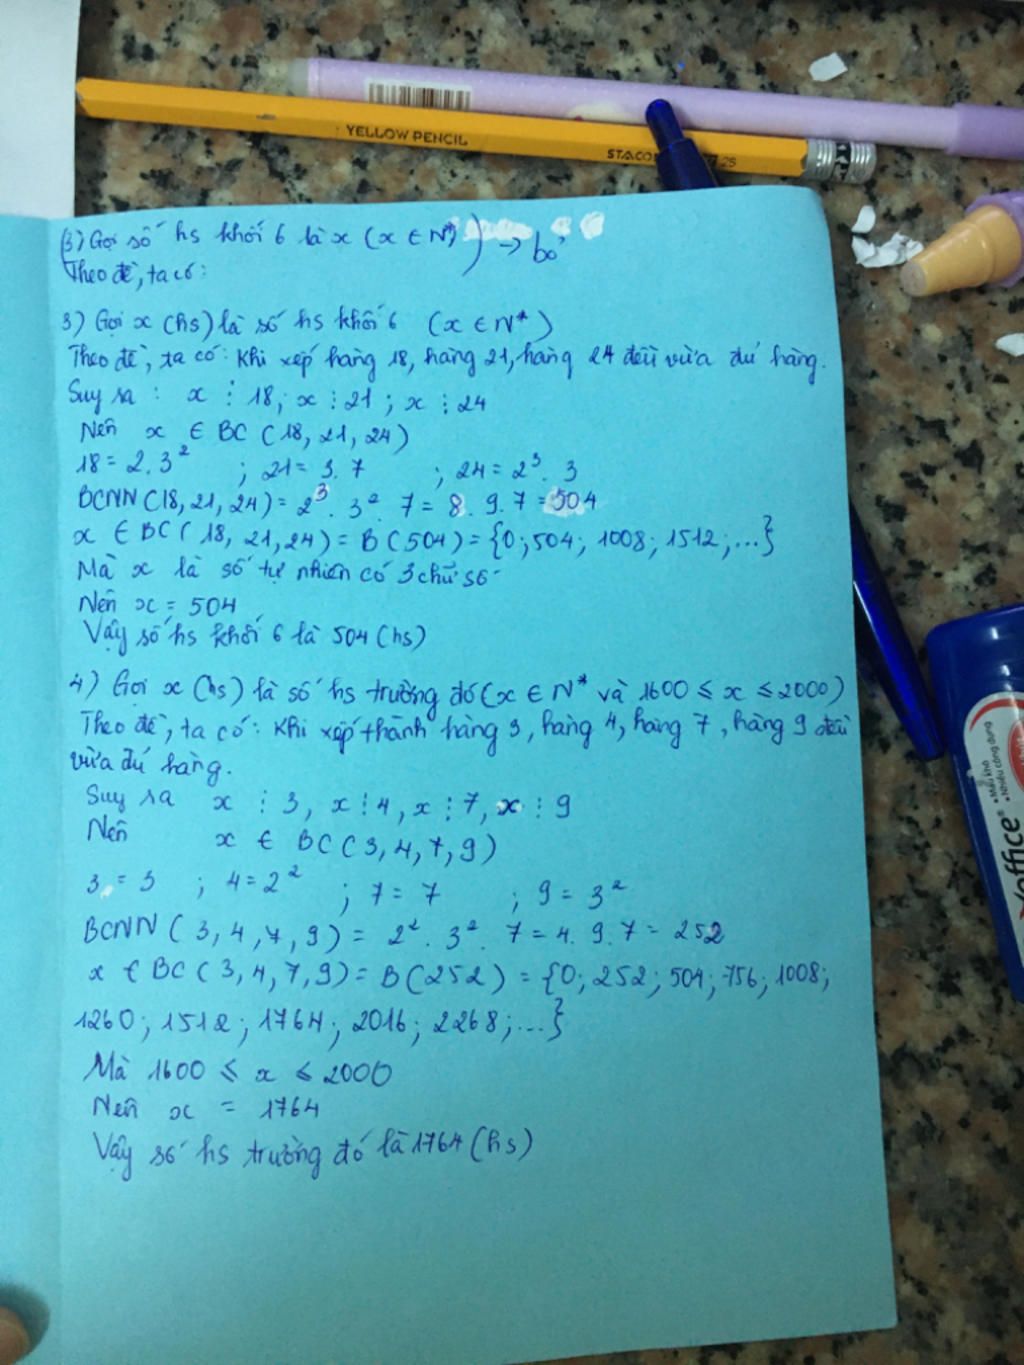 YELLOW PENCIL
STACO
2B
(3) Gọi số hs khối 6 là x (x ∈ N*) → bỏ
Theo đề, ta có:
3) Gọi x (hs) là số hs khối 6 (x ∈ N*)
Theo đề, ta có: Khi xếp hàng 18, hàng 21, hàng 24 đều vừa đủ hàng.
Suy ra : x ⋮ 18; x ⋮ 21 ; x ⋮ 24
Nên x ∈ BC (18, 21, 24)
18 = 2. 3² ; 21 = 3. 7 ; 24 = 2³. 3
BCNN (18, 21, 24) = 2³. 3². 7 = 8. 9. 7 = 504
x ∈ BC ( 18, 21, 24) = B (504) = {0; 504; 1008; 1512; ...}
Mà x là số tự nhiên có 3 chữ số
Nên x = 504
Vậy số hs khối 6 là 504 (hs)
4) Gọi x (hs) là số hs trường đó (x ∈ N* và 1600 ≤ x ≤ 2000)
Theo đề, ta có: Khi xếp thành hàng 3, hàng 4, hàng 7, hàng 9 đều
vừa đủ hàng.
Suy ra x ⋮ 3, x ⋮ 4, x ⋮ 7, x ⋮ 9
Nên x ∈ BC ( 3, 4, 7, 9)
3 = 3 ; 4 = 2² ; 7 = 7 ; 9 = 3²
BCNN ( 3, 4, 7, 9) = 2². 3². 7 = 4. 9. 7 = 252
x ∈ BC ( 3, 4, 7, 9) = B (252) = {0; 252; 504; 756; 1008;
1260; 1512; 1764; 2016; 2268; ...}
Mà 1600 ≤ x ≤ 2000
Nên x = 1764
Vậy số hs trường đó là 1764 (hs)
• Mau khô
• Nhiều công dụng
Xoffice